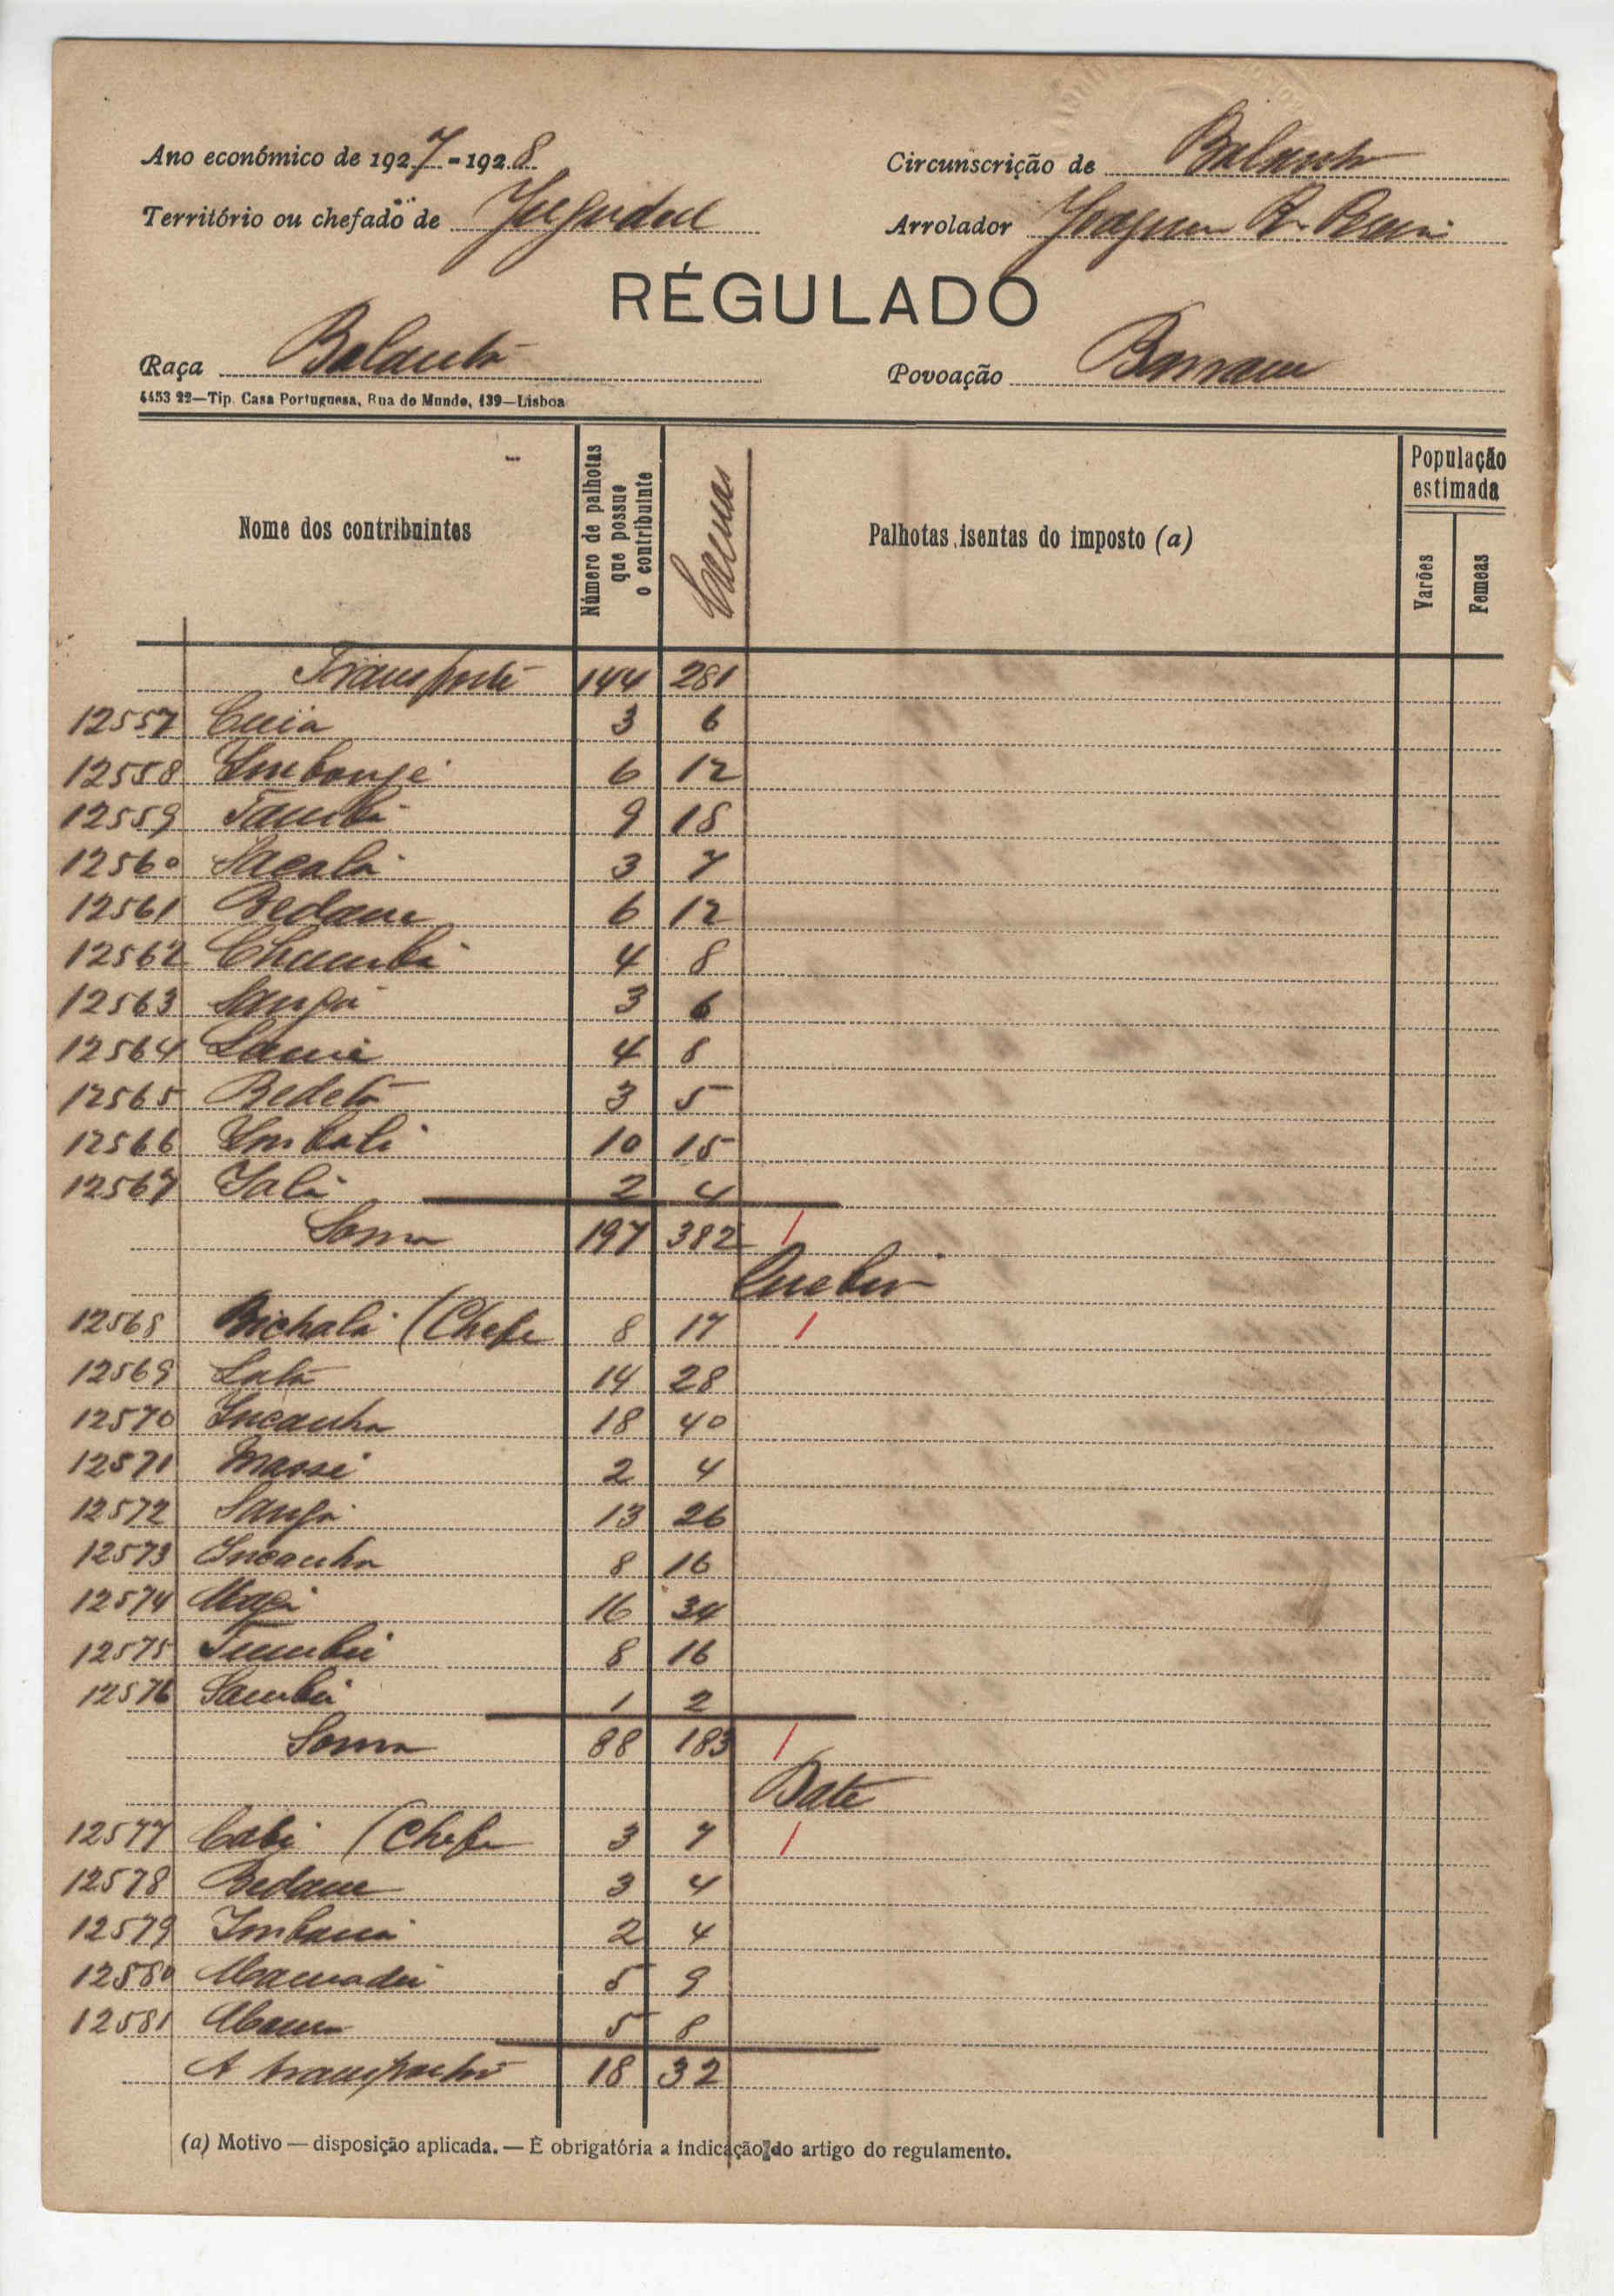 Ano económico de 1927-1928
Circunscrição de Balanta
Território ou chefado de Jugudul
Arrolador Joaquim R.
RÉGULADO
Raça Balanta
Povoação
4453 22—Tip. Casa Portuguesa, Rua do Mundo, 139—Lisboa
Nome dos contribuintes
Número de palhotas que possue o contribuinte
Palhotas isentas do imposto (a)
População estimada
Varões
Femeas
Transporte 144 281
12557 Cuia 3 6
12558 6 12
12559 Tambá 9 18
12560 3 7
12561 Bedane 6 12
12562 4 8
12563 Sanhá 3 6
12564 4 8
12565 Bedetá 3 5
12566 Imbali 10 15
12567 Ialá 2 4
Soma 197 382 /
12568 (Chefe 8 17 /
12569 14 28
12570 Incanha 18 40
12571 Massé 2 4
12572 Sanhá 13 26
12573 Incanha 8 16
12574 16 34
12575 Tumbú 8 16
12576 1 2
Soma 88 183 /
Date
12577 Cabi (Chefe 3 7 /
12578 Bedane 3 4
12579 2 4
12580 Mamadú 5 9
12581 5 8
A transportar 18 32
(a) Motivo — disposição aplicada. — É obrigatória a indicação do artigo do regulamento.